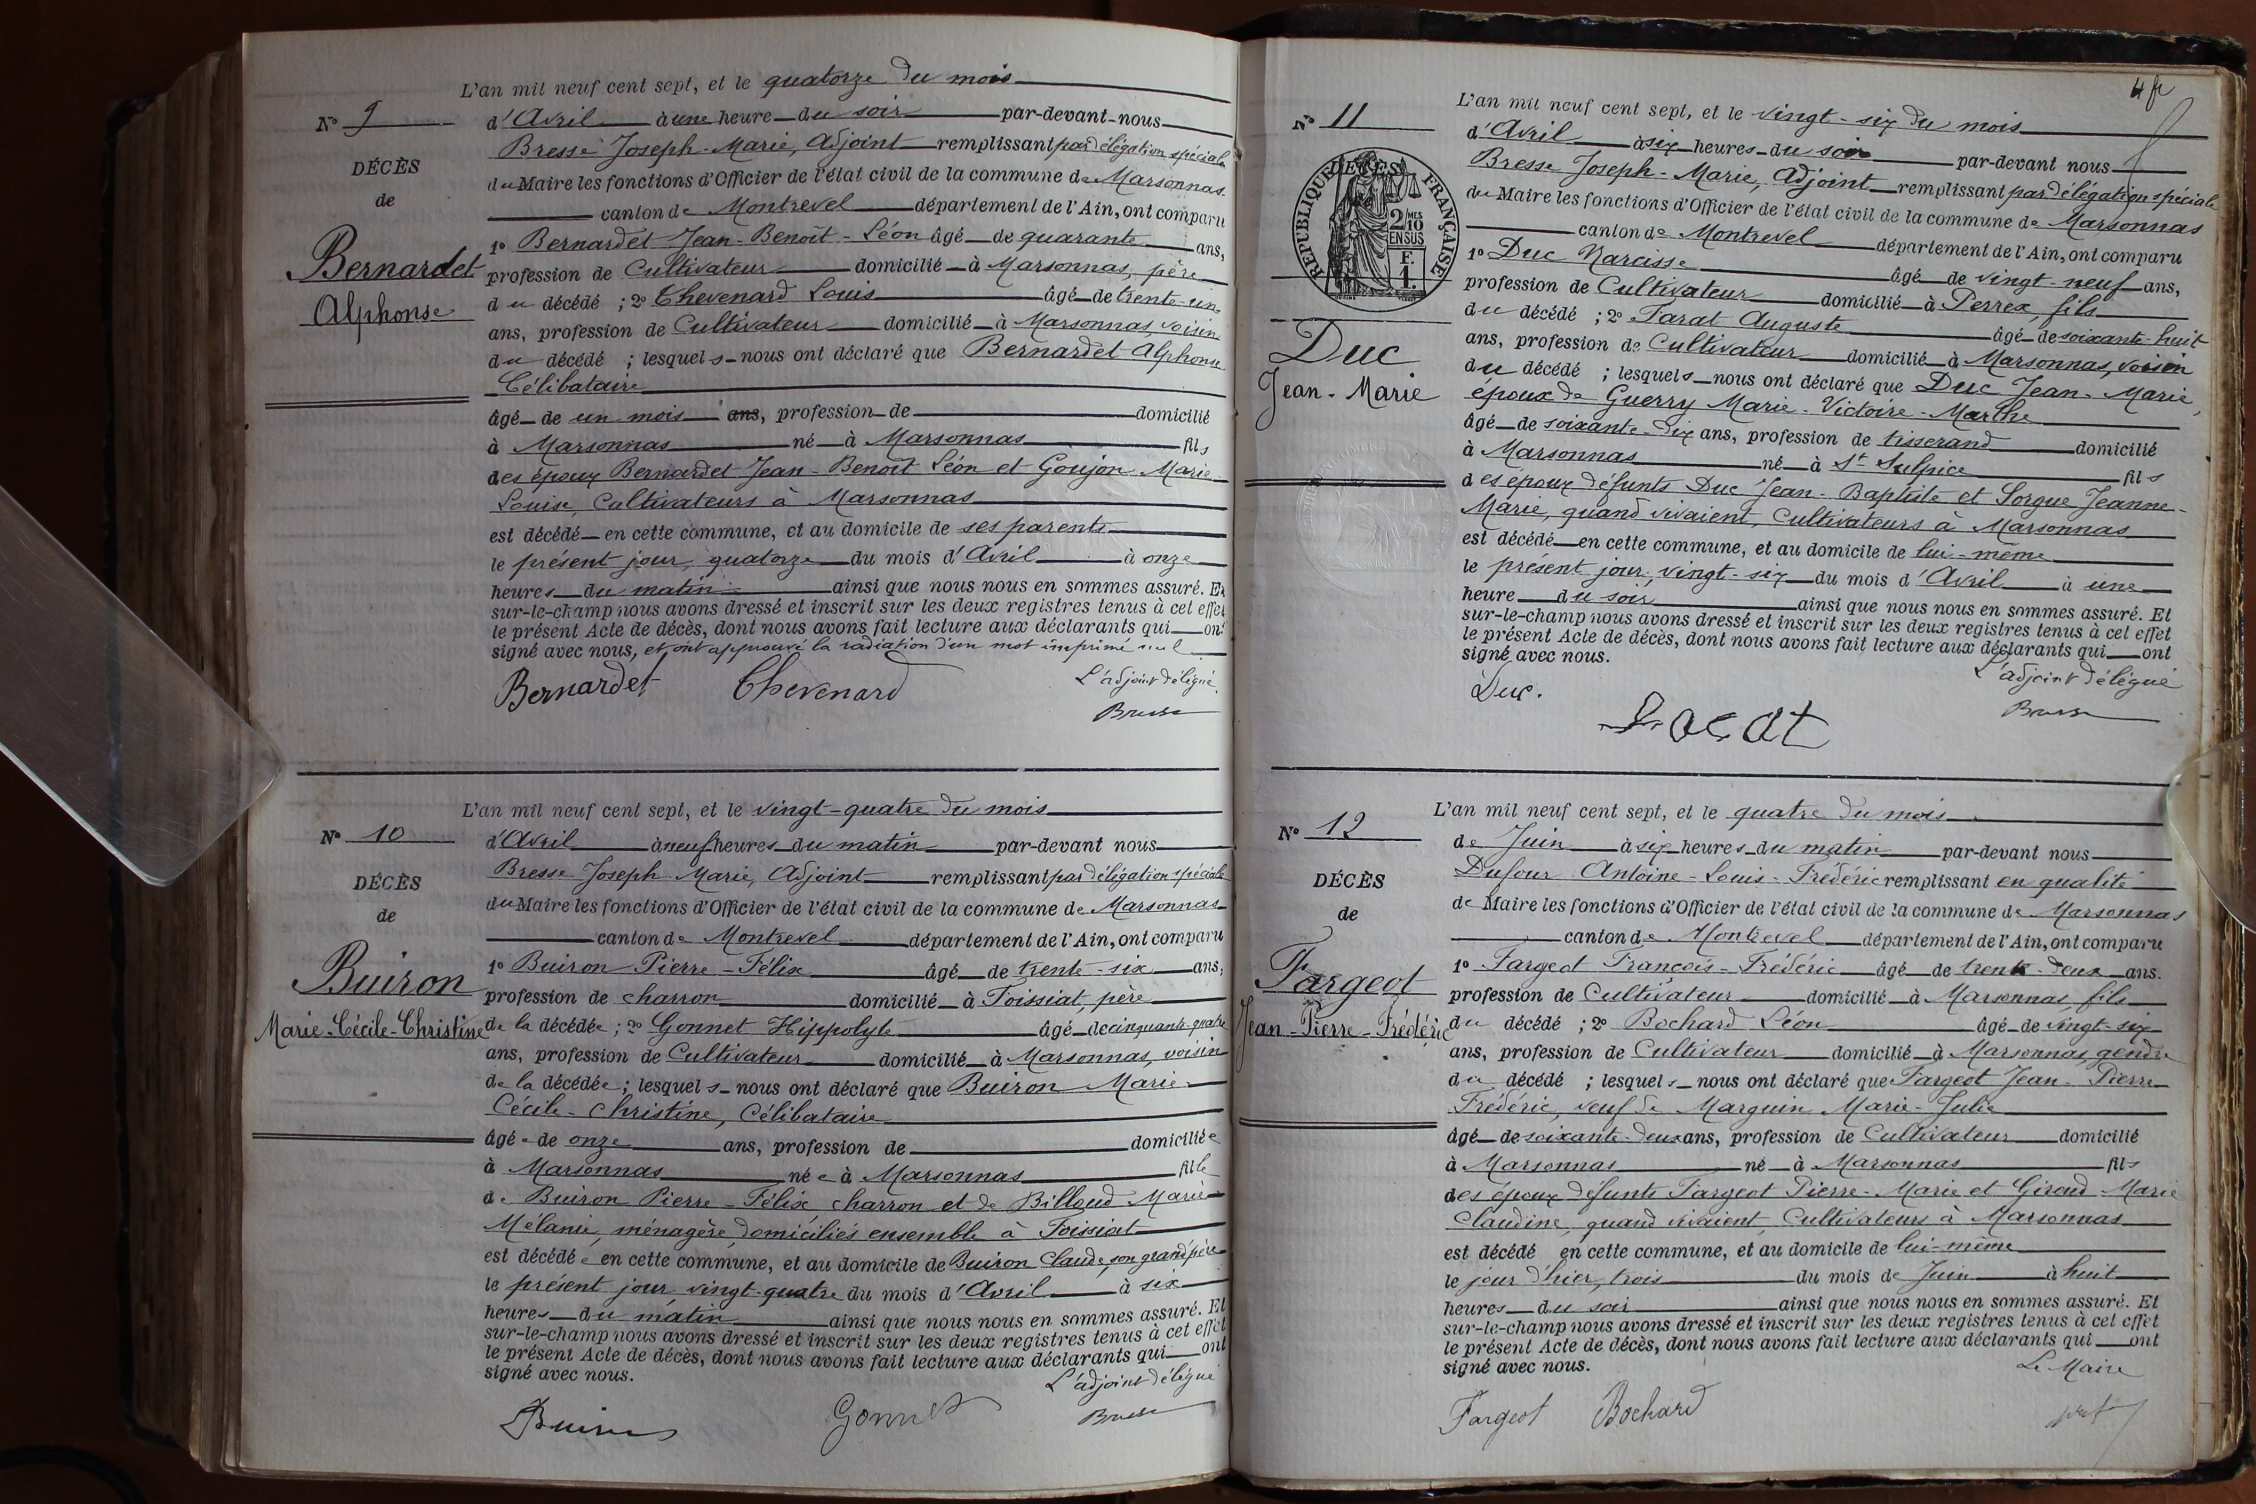 L'an mil neuf cent sept, et le quatorze du mois
N° 9
d'Avril à une heure du soir par-devant-nous
Bresse Joseph-Marie, Adjoint remplissant par délégation spéciale
DÉCÈS
du Maire les fonctions d'Officier de l'état civil de la commune de Marsonnas
de
canton de Montrevel département de l'Ain, ont comparu
Bernardet
Alphonse
1° Bernardet Jean-Benoît-Léon âgé de quarante ans,
profession de Cultivateur domicilié à Marsonnas, père
du décédé ; 2° Thevenard Louis âgé de trente-un
ans, profession de Cultivateur domicilié à Marsonnas voisin
du décédé ; lesquels nous ont déclaré que Bernardet Alphonse
Célibataire
âgé de un mois ans, profession de domicilié
à Marsonnas né à Marsonnas fils
des époux Bernardet Jean-Benoît Léon et Goujon Marie
Louise, Cultivateurs à Marsonnas
est décédé en cette commune, et au domicile de ses parents
le présent jour, quatorze du mois d'Avril à onze
heures du matin ainsi que nous nous en sommes assuré. Et
sur-le-champ nous avons dressé et inscrit sur les deux registres tenus à cet effet
le présent Acte de décès, dont nous avons fait lecture aux déclarants qui ont
signé avec nous, et ont approuvé la radiation d'un mot imprimé nul
Bernardet Thevenard L'adjoint délégué
Bresse
L'an mil neuf cent sept, et le vingt-quatre du mois
N° 10
d'Avril à neuf heures du matin par-devant nous
Bresse Joseph Marie, Adjoint remplissant par délégation spéciale
DÉCÈS
du Maire les fonctions d'Officier de l'état civil de la commune de Marsonnas
de
canton de Montrevel département de l'Ain, ont comparu
Buiron
Marie-Cécile-Christine
1° Buiron Pierre-Félix âgé de trente-six ans,
profession de charron domicilié à Foissiat, père
de la décédée ; 2° Gonnet Hippolyte âgé de cinquante-quatre
ans, profession de Cultivateur domicilié à Marsonnas, voisin
de la décédée ; lesquels nous ont déclaré que Buiron Marie
Cécile-Christine, Célibataire
âgée de onze ans, profession de domiciliée
à Marsonnas née à Marsonnas fille
de Buiron Pierre-Félix charron et de Billoud Marie
Mélanie, ménagère domiciliés ensemble à Foissiat
est décédée en cette commune, et au domicile de Buiron Claude, son grand père
le présent jour vingt-quatre du mois d'Avril à six
heures du matin ainsi que nous nous en sommes assuré. Et
sur-le-champ nous avons dressé et inscrit sur les deux registres tenus à cet effet
le présent Acte de décès, dont nous avons fait lecture aux déclarants qui ont
signé avec nous.
L'adjoint délégué
Buiron Gonnet Bresse
L'an mil neuf cent sept, et le vingt-six du mois
N° 11
d'Avril à six heures du soir par-devant nous
Bresse Joseph-Marie, Adjoint remplissant par délégation spéciale
du Maire les fonctions d'Officier de l'état civil de la commune de Marsonnas
canton de Montrevel département de l'Ain, ont comparu
DÉCÈS
RÉPUBLIQUE FRANÇAISE
2/10 MES
EN SUS
F.
1.
Duc
Jean-Marie
1° Duc Narcisse âgé de vingt-neuf ans,
profession de Cultivateur domicilié à Perrex, fils
du décédé ; 2° Farat Auguste âgé de soixante-huit
ans, profession de Cultivateur domicilié à Marsonnas, voisin
du décédé ; lesquels nous ont déclaré que Duc Jean-Marie,
époux de Guerry Marie-Victoire-Marthe
âgé de soixante-dix ans, profession de tisserand domicilié
à Marsonnas né à St Sulpice fils
des époux défunts Duc Jean-Baptiste et Sorgue Jeanne-
Marie, quand vivaient, Cultivateurs à Marsonnas
est décédé en cette commune, et au domicile de lui-même
le présent jour, vingt-six du mois d'Avril à une
heure du soir ainsi que nous nous en sommes assuré. Et
sur-le-champ nous avons dressé et inscrit sur les deux registres tenus à cet effet
le présent Acte de décès, dont nous avons fait lecture aux déclarants qui ont
signé avec nous.
L'adjoint délégué
Duc. Bresse
L'an mil neuf cent sept, et le quatre du mois
N° 12
de Juin à six heures du matin par-devant nous
Dufour Antoine-Louis-Frédéric remplissant en qualité
DÉCÈS
de Maire les fonctions d'Officier de l'état civil de la commune de Marsonnas
de
canton de Montrevel département de l'Ain, ont comparu
Fargeot
Jean-Pierre-Frédéric
1° Fargeot François-Frédéric âgé de trente-deux ans.
profession de Cultivateur domicilié à Marsonnas, fils
du décédé ; 2° Bochard Léon âgé de vingt-six
ans, profession de Cultivateur domicilié à Marsonnas, gendre
du décédé ; lesquels nous ont déclaré que Fargeot Jean-Pierre
Frédéric, veuf de Marguin Marie-Julie
âgé de soixante-deux ans, profession de Cultivateur domicilié
à Marsonnas né à Marsonnas fils
des époux défunts Fargeot Pierre-Marie et Giroud Marie
Claudine, quand vivaient Cultivateurs à Marsonnas
est décédé en cette commune, et au domicile de lui-même
le jour d'hier, trois du mois de Juin à huit
heures du soir ainsi que nous nous en sommes assuré. Et
sur-le-champ nous avons dressé et inscrit sur les deux registres tenus à cet effet
le présent Acte de décès, dont nous avons fait lecture aux déclarants qui ont
signé avec nous.
Le Maire
Fargeot Bochard